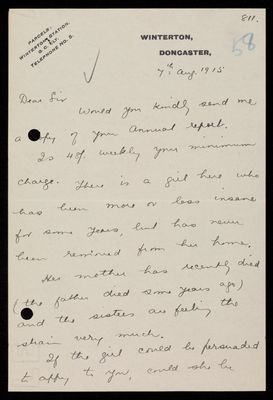 PARCELS,
WINTERTON STATION.
G.C. RLY.
TELEPHONE No. 5.
811.
58
WINTERTON,
DONCASTER,
7th Aug. 1915
Dear Sir
Would you kindly send me
a copy of your Annual report.
Is 40/ weekly your minimum
charge. There is a girl here who
has been more or less insane
for some years, but has never
been removed from her home.
Her mother has recently died
(the father died some years ago)
and the sisters are feeling the
strain very much.
If the girl could be persuaded
to apply to you, could she be